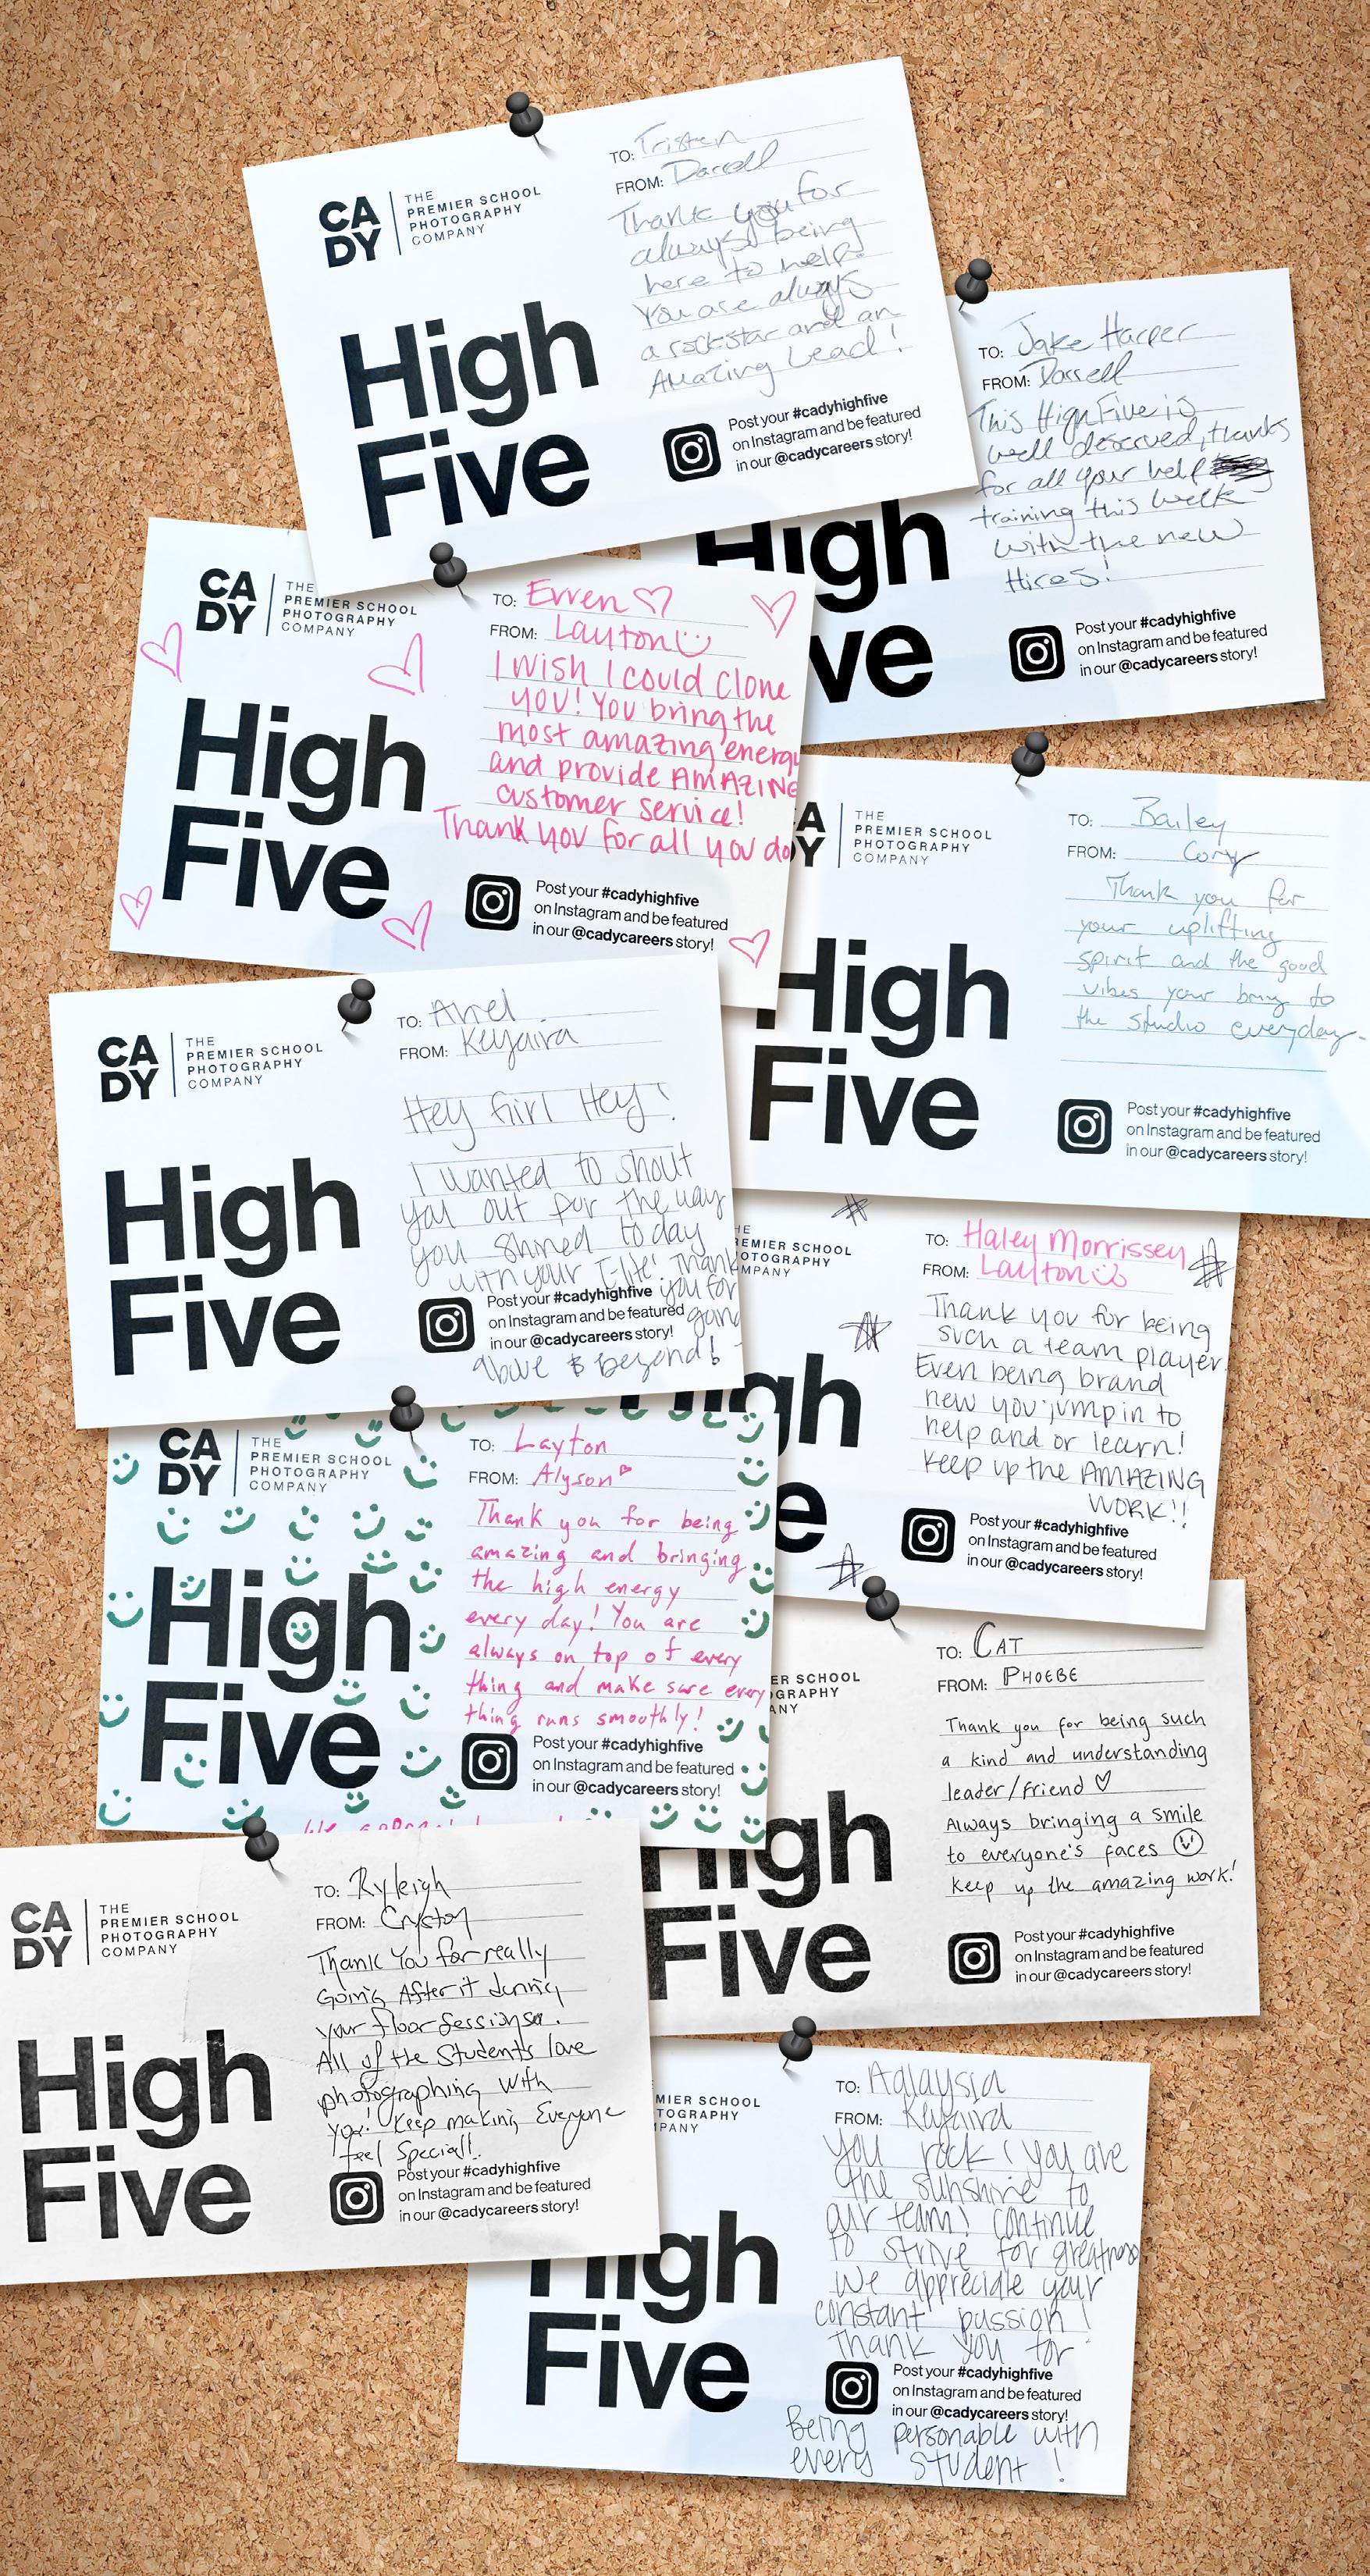 CA
DY
THE
PREMIER SCHOOL
PHOTOGRAPHY
COMPANY
High
Five
TO: Tristen
FROM: Darrell
Thank you for
always being
here to help.
You are always
a rockstar and an
Amazing Lead!
Post your #cadyhighfive
on Instagram and be featured
in our @cadycareers story!
High
ve
TO: Jake Harper
FROM: Darrell
This High Five is
well deserved, thanks
for all your help
training this week
with the new
Hires!
Post your #cadyhighfive
on Instagram and be featured
in our @cadycareers story!
CA
DY
THE
PREMIER SCHOOL
PHOTOGRAPHY
COMPANY
High
Five
TO: Erren
FROM: Layton
I wish I could clone
you! You bring the
most amazing energy
and provide AMAZING
customer service!
Thank you for all you do
Post your #cadyhighfive
on Instagram and be featured
in our @cadycareers story!
A
Y
THE
PREMIER SCHOOL
PHOTOGRAPHY
COMPANY
High
Five
TO: Bailey
FROM: Cory
Thank you for
your uplifting
spirit and the good
vibes your bring to
the studio everyday.
Post your #cadyhighfive
on Instagram and be featured
in our @cadycareers story!
CA
DY
THE
PREMIER SCHOOL
PHOTOGRAPHY
COMPANY
High
Five
TO: Ariel
FROM: Keyaira
Hey Girl Hey!
I wanted to shout
you out for the way
you shined today
with your T-lite! Thank
you for
going
above & beyond!
Post your #cadyhighfive
on Instagram and be featured
in our @cadycareers story!
HE
REMIER SCHOOL
OTOGRAPHY
MPANY
High
e
TO: Haley Morrissey
FROM: Layton
Thank you for being
such a team player.
Even being brand
new you jump in to
help and or learn!
Keep up the AMAZING
WORK!!
Post your #cadyhighfive
on Instagram and be featured
in our @cadycareers story!
CA
DY
THE
PREMIER SCHOOL
PHOTOGRAPHY
COMPANY
High
Five
TO: Layton
FROM: Alyson
Thank you for being
amazing and bringing
the high energy
every day! You are
always on top of every
thing and make sure every
thing runs smoothly!
Post your #cadyhighfive
on Instagram and be featured
in our @cadycareers story!
We
ER SCHOOL
GRAPHY
ANY
High
Five
TO: CAT
FROM: PHOEBE
Thank you for being such
a kind and understanding
leader/friend
Always bringing a smile
to everyone's faces
Keep up the amazing work!
Post your #cadyhighfive
on Instagram and be featured
in our @cadycareers story!
CA
DY
THE
PREMIER SCHOOL
PHOTOGRAPHY
COMPANY
High
Five
TO: Ryleigh
FROM:
Thank You for really
Going After it during
your floor sessions.
All of the Students love
photographing with
you! Keep making Everyone
feel Special!
Post your #cadyhighfive
on Instagram and be featured
in our @cadycareers story!
MIER SCHOOL
TOGRAPHY
PANY
High
Five
TO: Adaysia
FROM: Keyaira
You rock! you are
the sunshine to
our team! continue
to strive for greatness
We appreciate your
constant passion!
Thank you for
Post your #cadyhighfive
on Instagram and be featured
in our @cadycareers story!
Being personable with
every student!